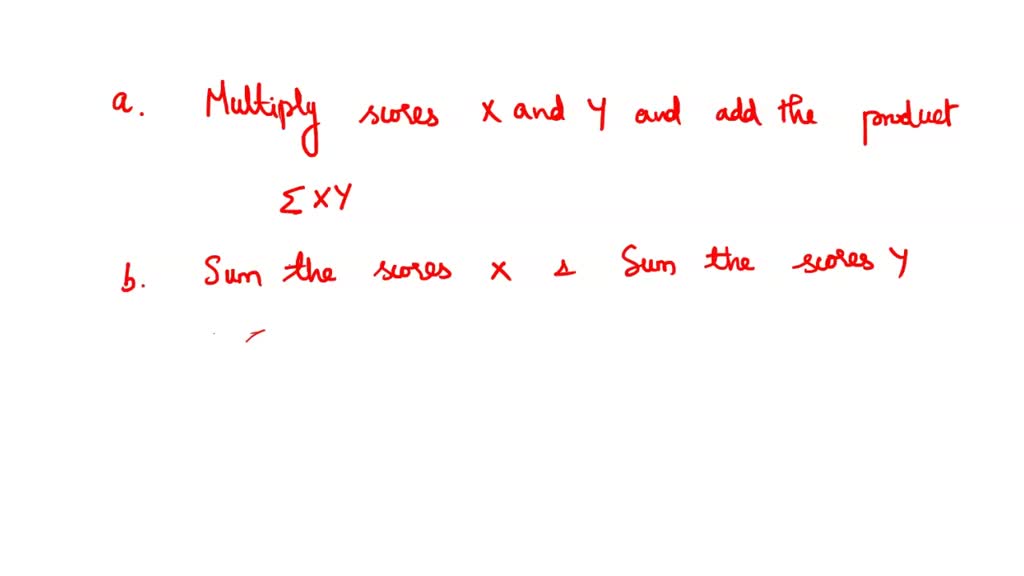 a. Multiply scores X and Y and add the product
Σ XY
b. Sum the scores X & Sum the scores Y